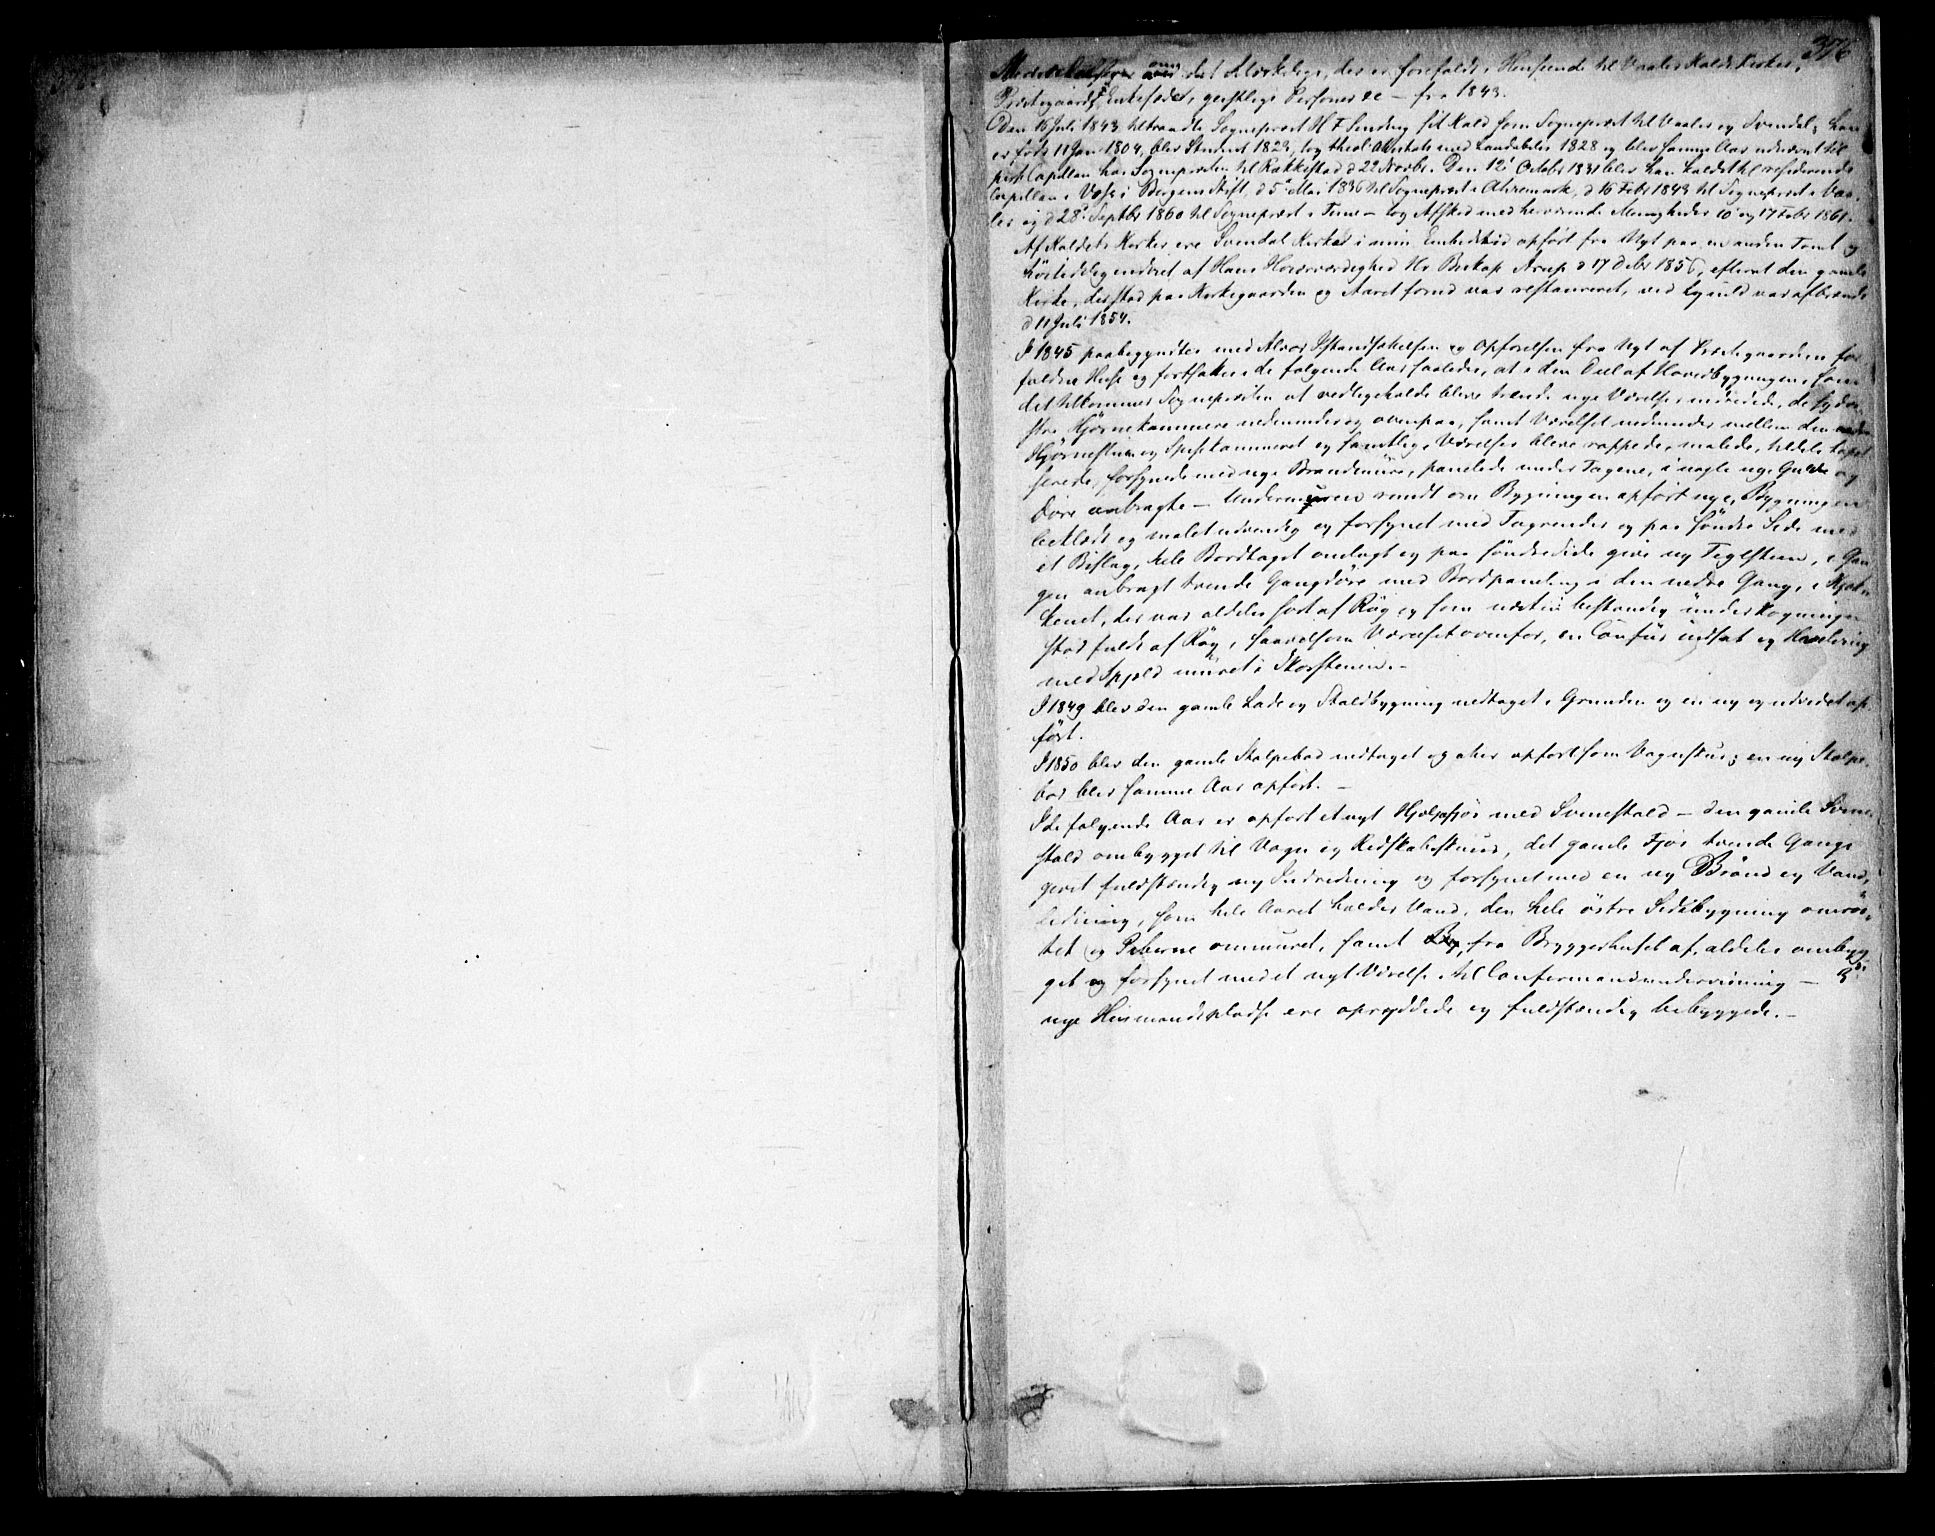 376
om det Mærkelige, der er forefaldt, Henseende til Vaaler Kalds Kirker,
Præstegaard, Enkesæder, geistlige Personer &c – fra 1843.
Den 15 Juli 1843 tiltraadte Sognepræst H F Sinding sit Kald som Sognepræst til Vaaler og Svindal; han
er født 11 Jan 1804, blev Student 1823, tog theol: med Laudabilis 1828 og blev samme Aar til
pers: Capellan hos Sognepræsten til Rakkestad d 22 Novbr. Den 12 October 1831 blev han kaldet til residerende
Capellan i Voss i Bergens Stift, d 5 Mai 1836 til Sognepræst i Aremark, d 16 Febr 1843 til Sognepræst i Vaa-
ler og d 28 Septbr 1860 til Sognepræst i Tune – tog Afsked med herværende Menigheder 10 og 17 Febr 1861.
Af Kaldets Kirker ere Svendal Kirke i min Embedstid opført fra Nyt paa en anden Tomt og
høitideligen indviet af Hans Høiærværdighed Hr Biskop Arup d 17 Debr 1856, efterat den gamle
Kirke, der stod paa Kirkegaarden og Aaret forud var restaureret, ved Lynild var afbrændt
d 11 Juli 1854.
I 1845 paabegyndtes med Alvor Istandsættelsen og Opførelsen fra Nyt af Præstegaardens for-
faldne Huse og fortsattes i de følgende Aar saaledes, at i den Deel af Hovedbygningen, som
det tilkommer Sognepræsten at vedligeholde bleve trende nye Værelser indredede, de sydve-
stre Hjørnekammere nedenunder og ovenpaa, samt Værelset nedenunder mellem den
Hjørnestue og Spisekammeret og samtlige Værelser bleve rappede, malede, tildels tapet-
serede, forsynede med nye Brandmure, panelede under Tagene, i nogle nye Gulve og
Døre anbragte – Undermuren rundt om Bygningen opført nye, Bygningen
beklædt og malet udvendig og forsynet med Tagrender og paa Søndre Side med
et Bislag, hele Bordtaget omlagt og paa søndre Side givet ny Teglsteen, i Gan-
gen anbragt trende Gangdøre med Bordpaneling i den nedre Gang, i Kjøk-
kenet, der var aldeles sort af Røg og som næsten bestandig under Kogningen
stod fuldt af Røg, saavelsom Værelset ovenfor, en Comfur indsat og
med Spjeld muret i Skorstenene. –
I 1849 blev den gamle Lade og Staldbygning nedtaget i Grunden og en ny og udvidet op-
ført.
I 1850 blev den gamle Stolpebod nedtaget og atter opført som Vognskur; en ny Stolpe-
bod blev samme Aar opført. –
I de følgende Aar er opført et nyt Hjælpefjøs med Svinestald – den gamle Svine-
stald ombygget til Vogn og Redskabsskuur, det gamle Fjøs trende Gange
givet fuldstændig ny Indredning og forsynet med en ny Brønd og Vand-
ledning, som hele Aaret holder Vand, den hele østre Sidebygning omrøs-
tet og Piberne ommuret, samt fra Bryggerhuset af, aldeles ombyg-
get og forsynet med et nyt Værelse til Confirmandundervisning – 3de
nye Husmandspladse ere opryddede og fuldstændig bebyggede. –